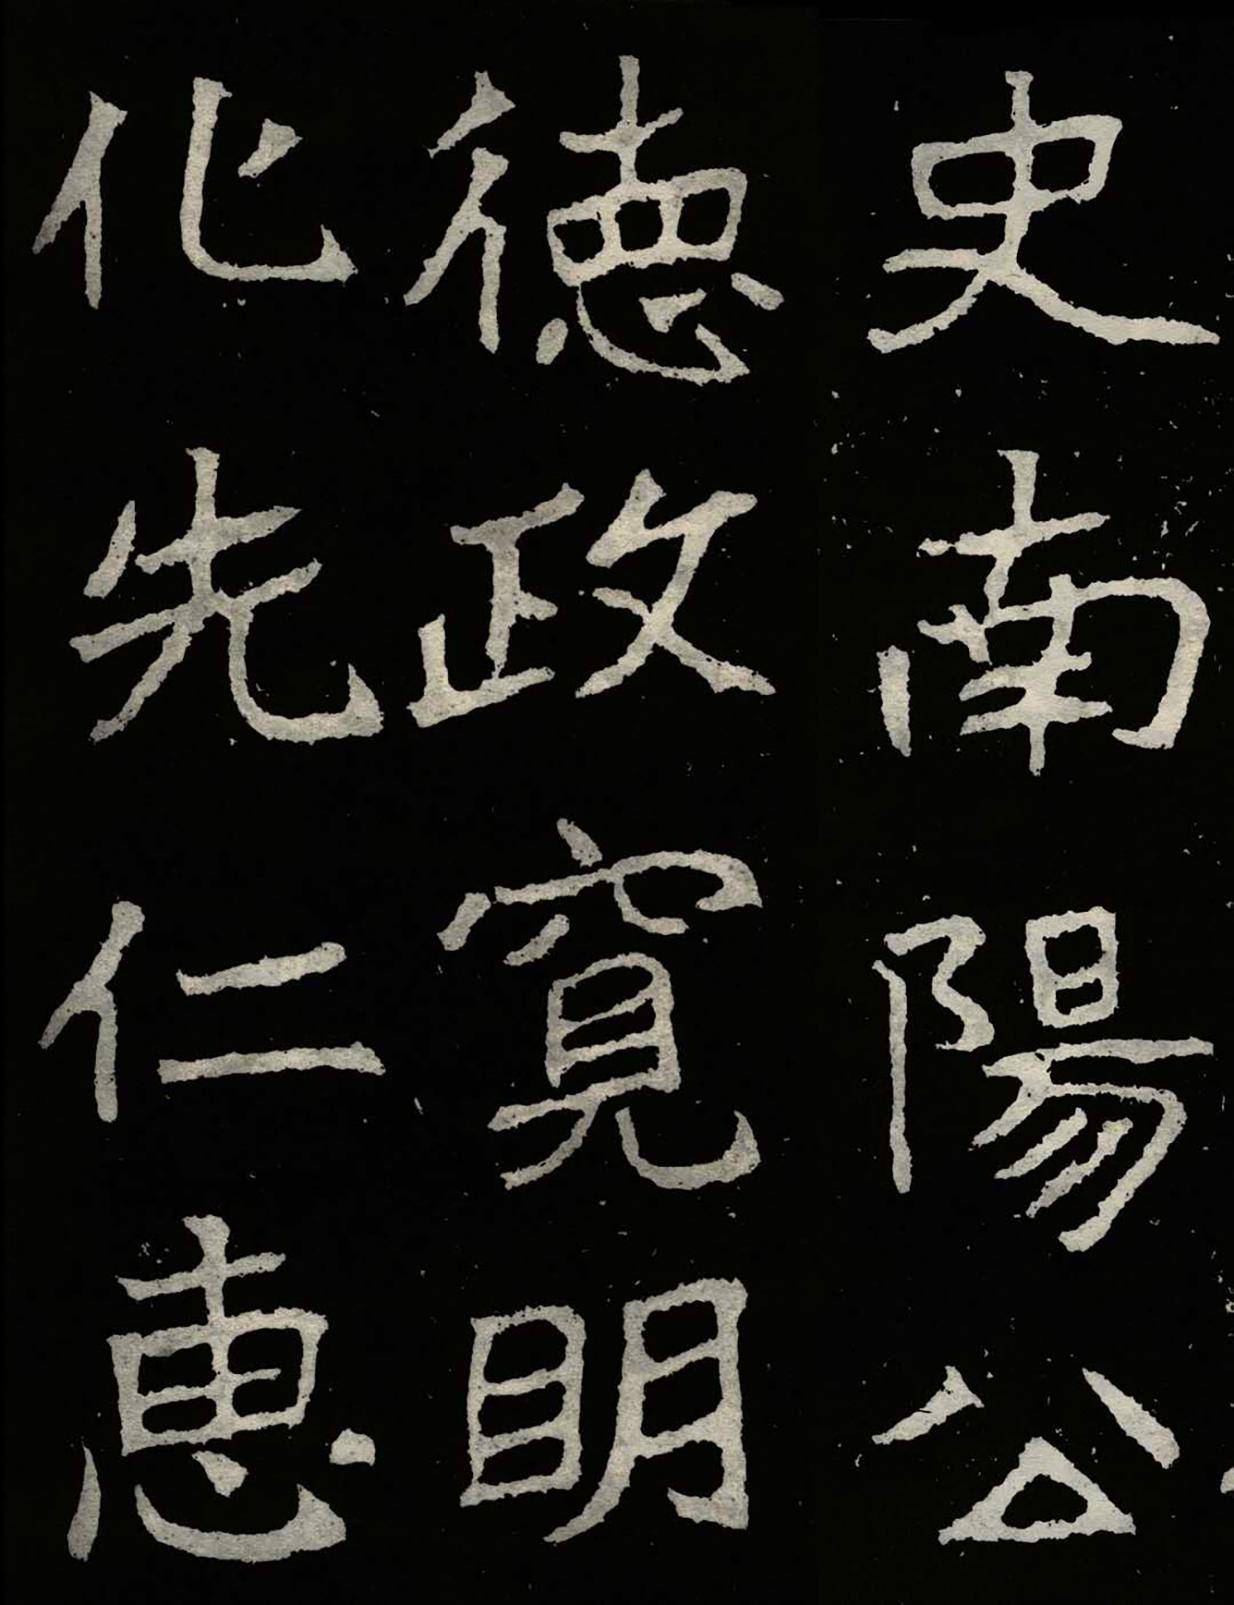 史南陽公
徳政寛明
化先仁恵